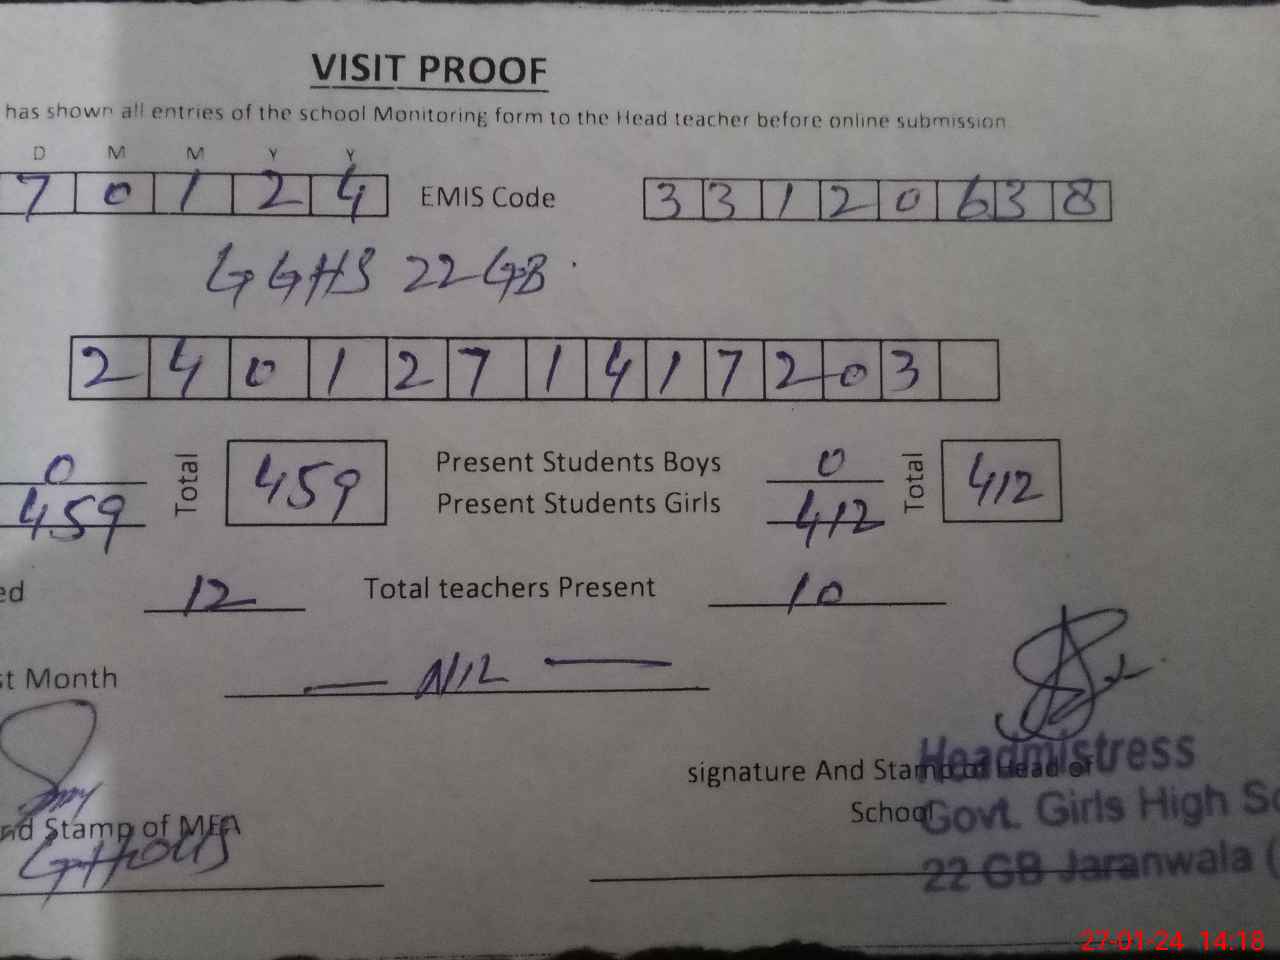 VISIT PROOF
has shown all entries of the school Monitoring form to the Head teacher before online submission
D M M Y Y
7 0 1 2 4 EMIS Code 3 3 1 2 0 6 3 8
GGHS 22 GB
2 4 0 1 2 7 1 4 1 7 2 0 3
0 Total 459 Present Students Boys 0 Total 412
459 Present Students Girls 412
ed 12 Total teachers Present 10
st Month — NIL —
signature And Stamp of Head of School
Headmistress
Govt. Girls High Sc
22 GB Jaranwala (
nd Stamp of MEA
27-01-24 14:18